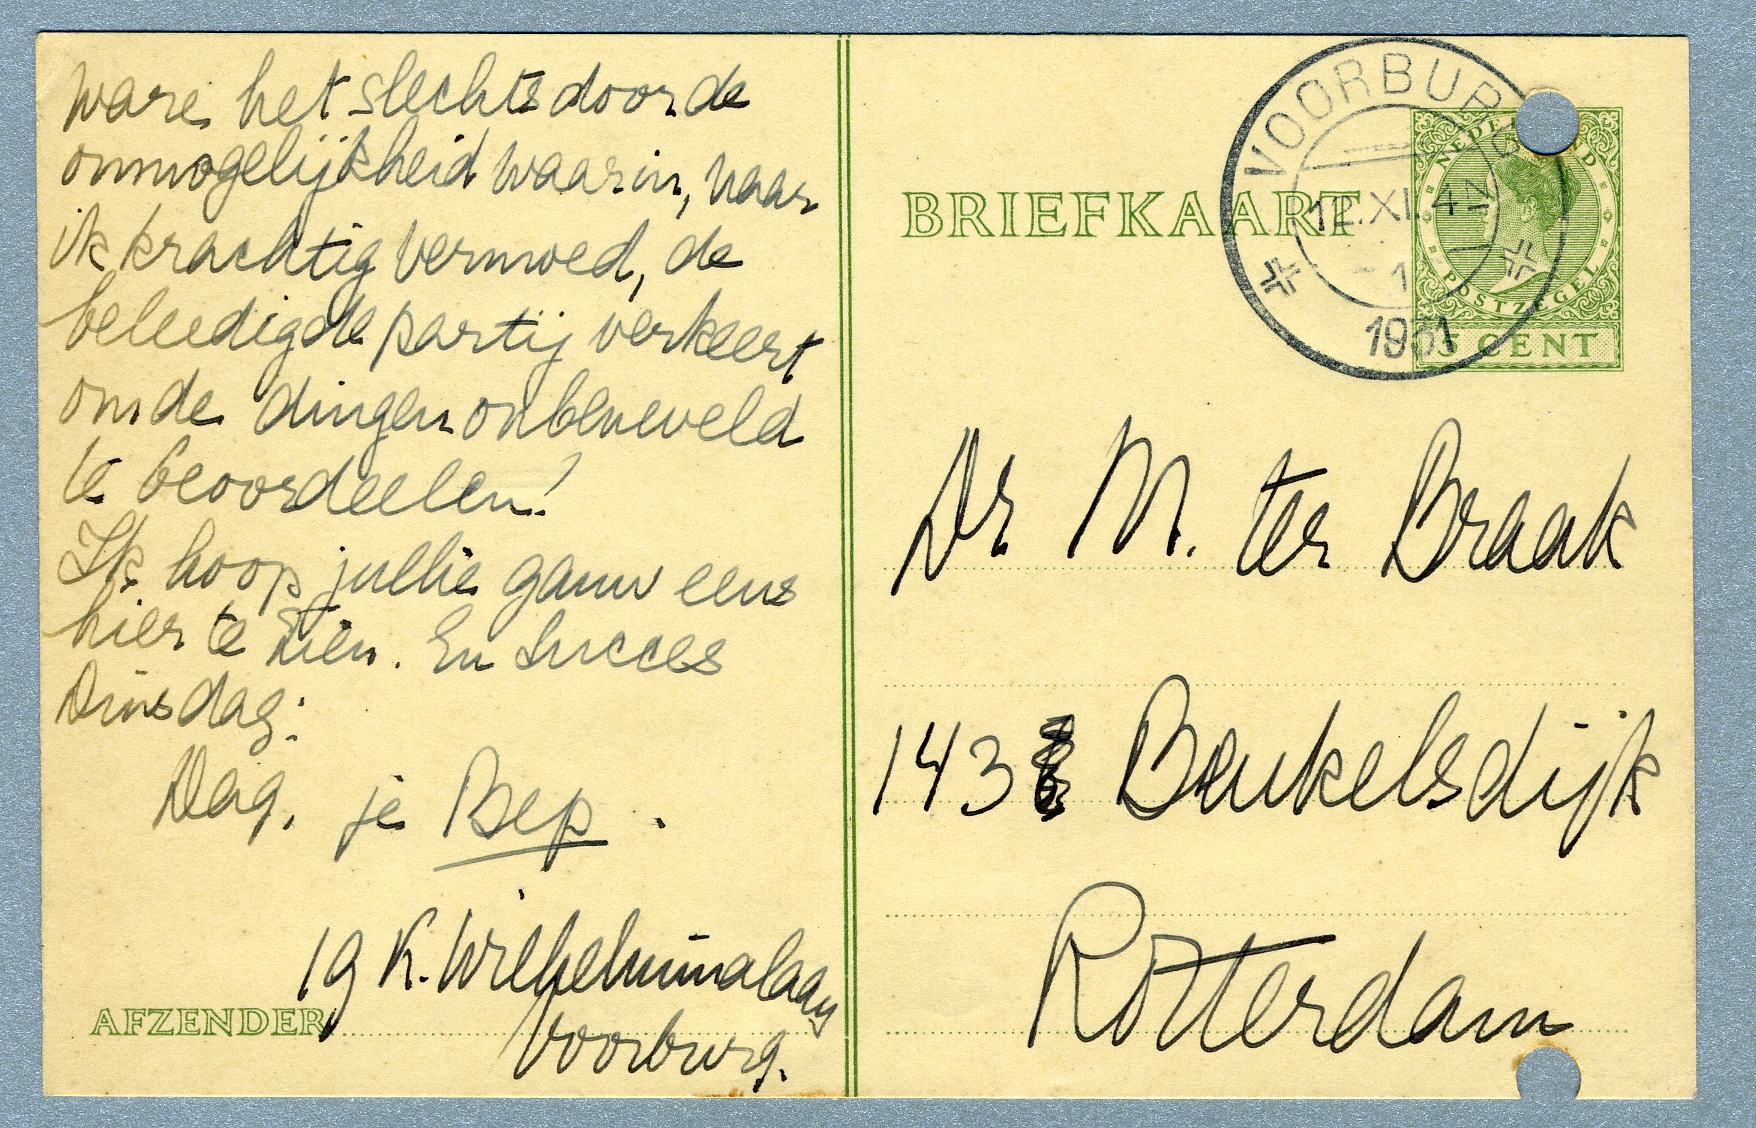 ware het slechts door de
onmogelijkheid waarin, naar
ik krachtig vermoed, de
beleedigde partij verkeert
om de dingen onbeneveld
te beoordeelen!
Ik hoop jullie gauw eens
hier te zien. En succes
Dinsdag.
Dag, je Bep.
19 K. Wilhelminalaan
AFZENDER
Voorburg.
VOORBURG
12.XI. 4N
1931
NEDERLAND
POSTZEGEL
5 CENT
BRIEFKAART
Dr M. ter Braak
143 Beukelsdijk
Rotterdam